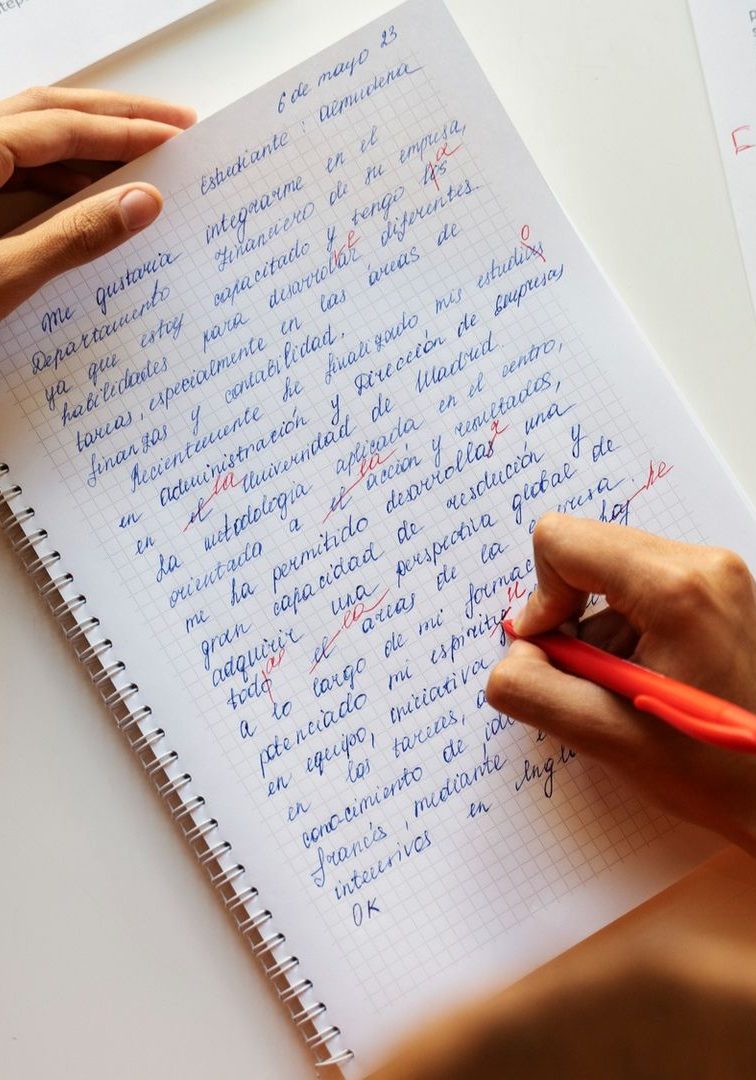 6 de mayo 23
Estudiante: Almudena
Me gustaria integrarme en el
Departamento Financiero de su empresa,
a
ya que estoy capacitado y tengo los
re
habilidades para desarrollar diferentes
tareas, especialmente en las áreas de
finanzas y contabilidad.
o
Recientemente he finalizado mis estudios
en administración y Dirección de Empresas
la
en el Universidad de Madrid.
La metodología aplicada en el centro,
la
orientada a el acción y resultados,
r
me ha permitido desarrollas una
gran capacidad de resolución y
adquirir una perspectiva global de
as la
todo el areas de la empresa.
he
a lo largo de mi hay
potenciado mi
en equipo, iniciativa
en las tareas,
conocimiento de
francés, mediante
intensivos en
OK
E